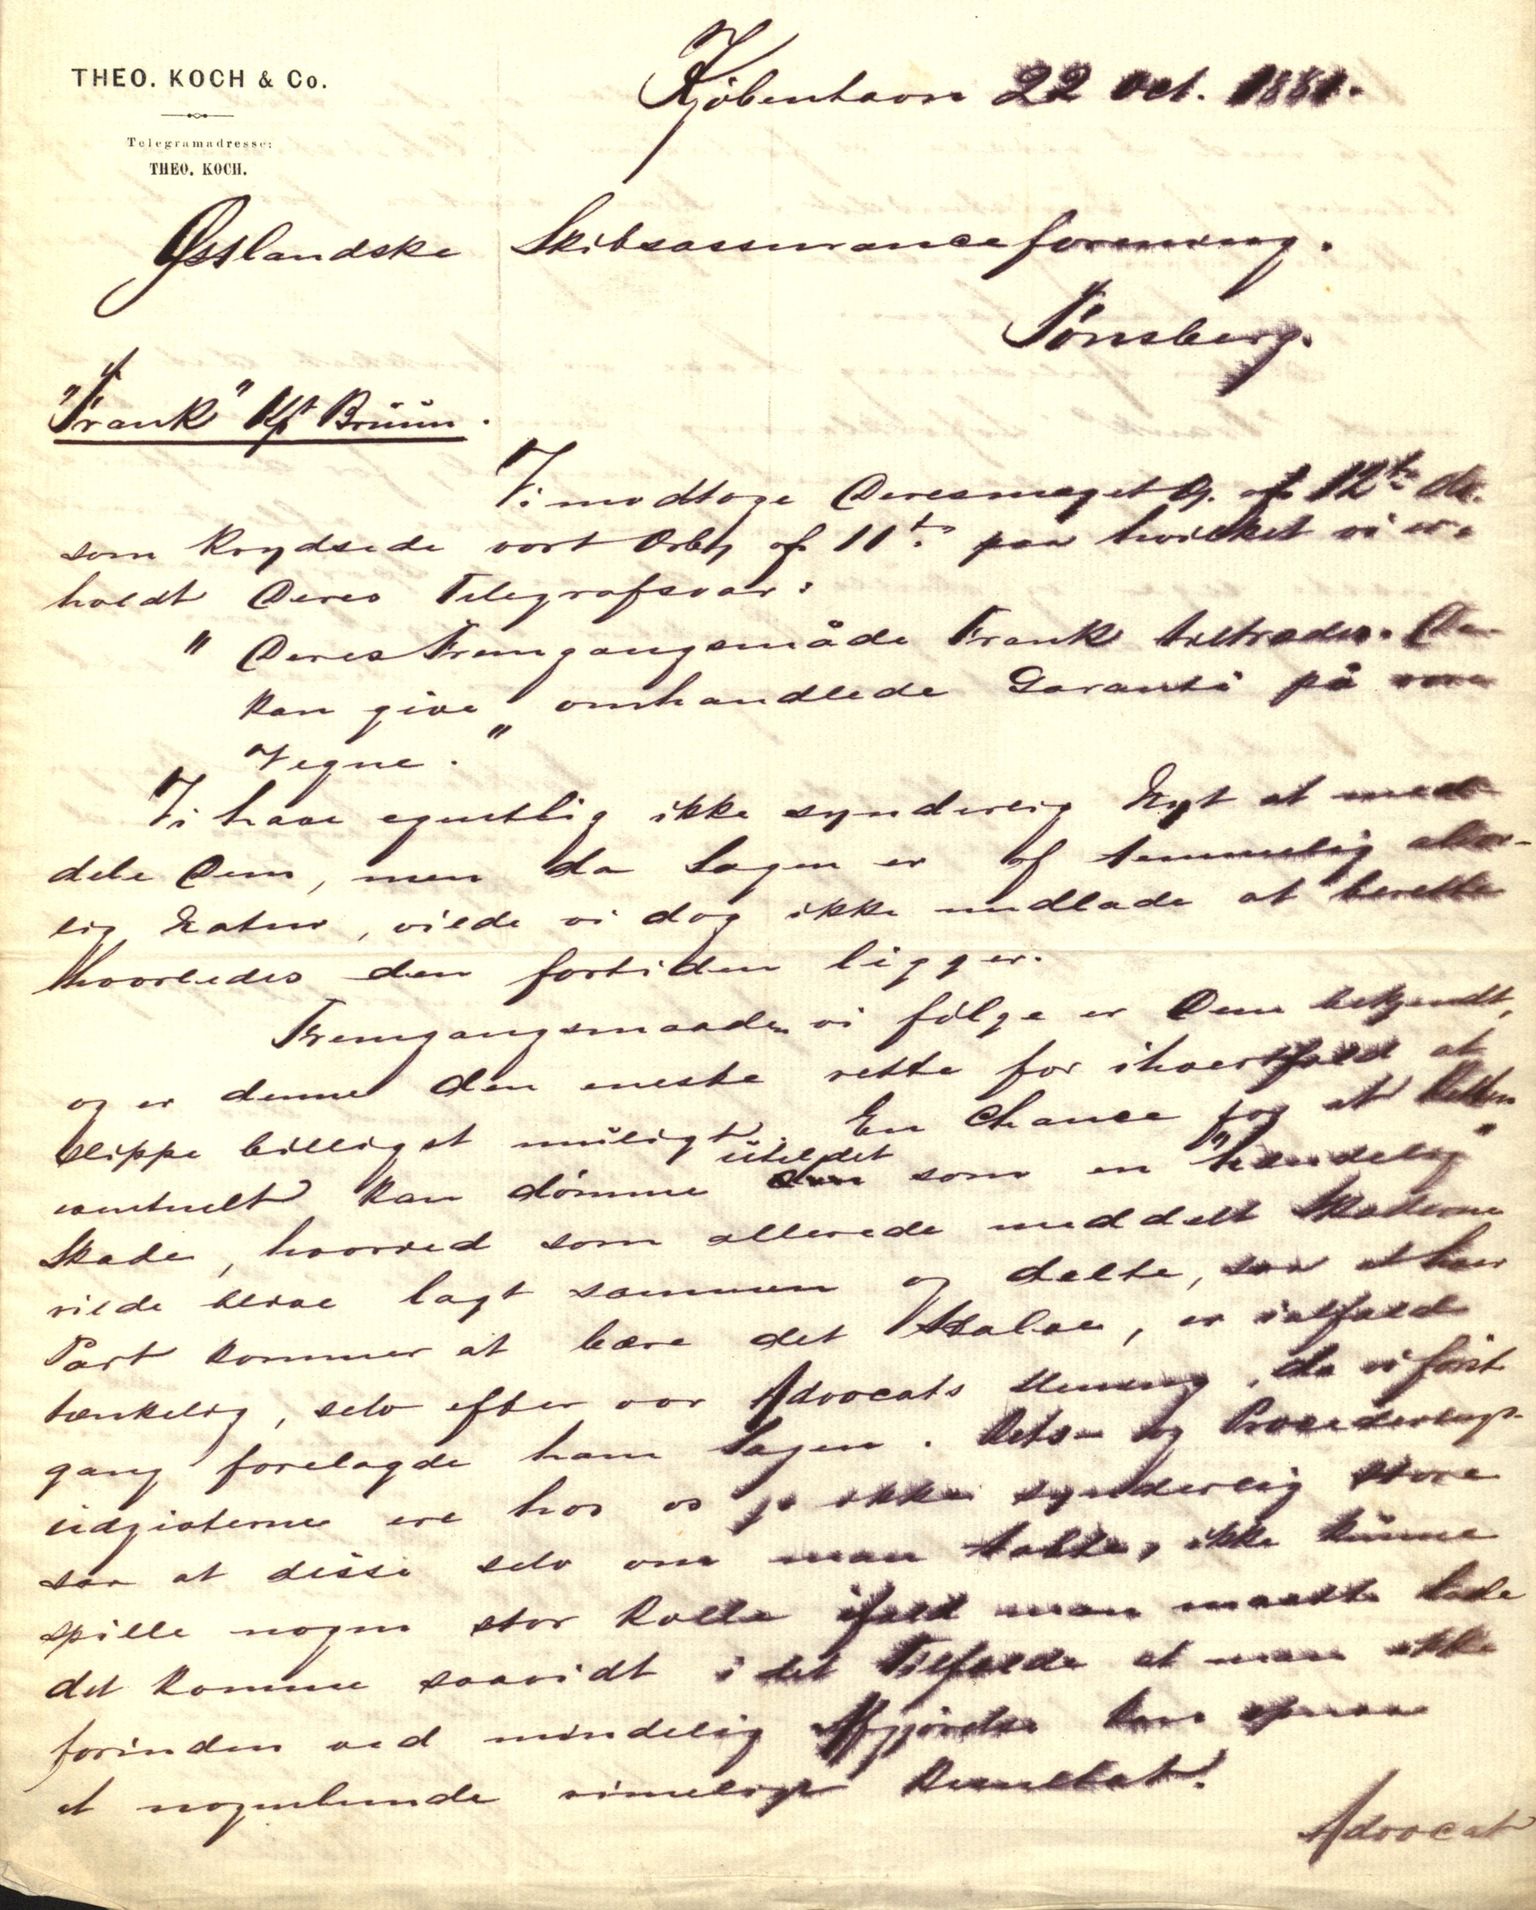 THEO. KOCH & Co.
Telegramadresse:
THEO. KOCH.
Kjöbenhavn 22 Oct. 1881.
Østlandske Skibsassuranceforening.
Tönsberg.
"Frank" Kpt Brüün.
Vi modtoge Deres meget Æ. af 12te ds.
som krydsede vort Erbg af 11te paa hvilket vi er-
holdt Deres Telegrafsvar:
" Deres Fremgangsmåde Frank tiltrædes. De
kan give omhandlede Garanti på vore
Vegne."
Vi have egentlig ikke synderlig Nyt at med
dele Dem, men da Sagen er af temmelig alvor-
lig Natur, vilde vi dog ikke undlade at berette
hvorledes den fortiden ligger.
Fremgangsmaaden vi fölge er Dem bekjendt,
og er denne den eneste rette for ihvertfald at
slippe billigst muligt. En Chance for at Retten
eventuelt kan dömme uheldet som en "hændelig"
Skade, hvorved som allerede meddelt Skaderne
vilde blive lagt sammen og delte, saa at hver
Part kommer at bære det Halve, er ialfald
tænkelig, selv efter vor Advocats Mening, da vi först
gang forelagde ham Sagen. Rets- og Procederings-
udgifterne ere hos os jo ikke synderlig store
saa at disse selv om man tabte, ikke kunne
spille nogen stor Rolle ifald man maatte lade
det komme saavidt i det Tilfælde at man ikke
forinden ved mindelig Afgjörelse kan opnaa
et nogenlunde rimeligt Resultat.
Advocat